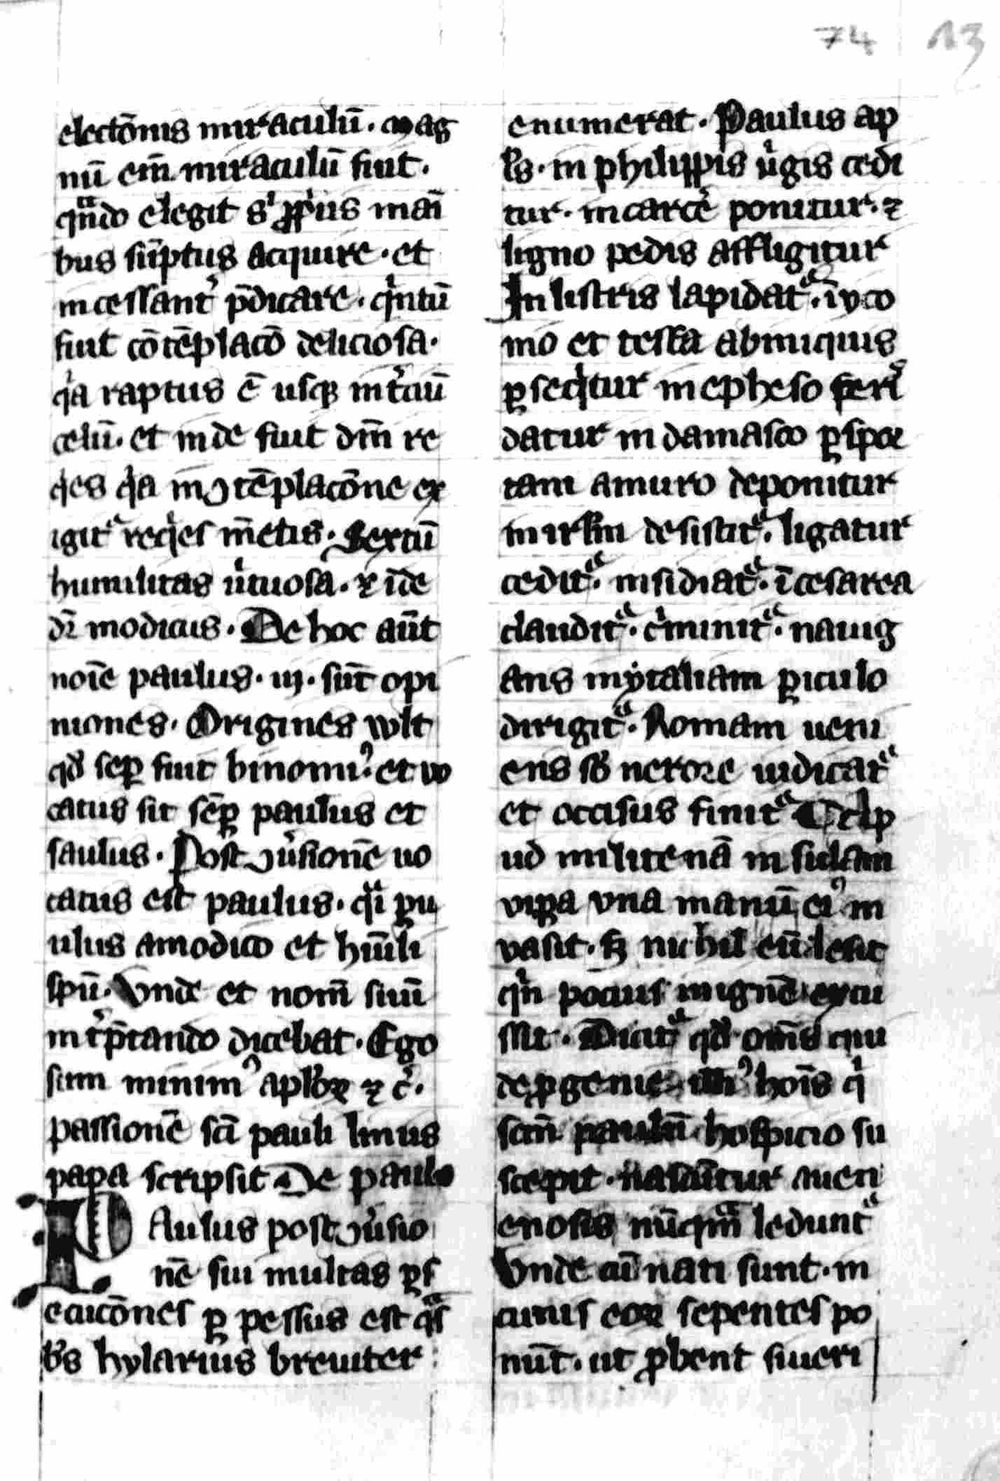 74 13
electōnis miraculū. mag
nū em̄ miraculū fuit.
qn̄do elegit s' ꝓp'iis mani
bus sūptus acquire. et
incessant' p̄dicare. q'ntū
fuit cōtēplacō deliciosa.
q'a raptus ē usqꝫ in t'ciū
celū. et inde fuit dm̄ re
q'es q'a in ꝯtēplacōne ex
igit' req'es mētis. Sextū
humilitas v'tuosa. ⁊ īde
dr̄ modicus. De hoc aūt
noīe paulus. iij. sūt opi
niones. Origines vult
qd̓ semꝑ fuit binomi'. et vo
catus sit semꝑ paulus et
saulus. Post ꝯu'sionē uo
catus est paulus. q'i ꝑu
ulus a modico et hūili
spū. Vnde et nom̄ suū
int'p̄tando dicebat. Ego
sum minim' aplōꝝ ⁊ c'.
passionē scī pauli linus
papa scripsit De paulo
PAulus post ꝯu'sio
nē sui multas ꝑs
ecucōnes ꝑpessus est q'̄s
b̄s hylarius breuiter
enumerat. Paulus ap
l's. in philippis v'gis cedi
tur. in carcē ponitur. ⁊
ligno pedis affligitur
In listris lapidat'. ī yco
nio et tessa ab iniquis
ꝑseq'tur in epheso feris
datur in damasco ꝑ spor
tam a muro deponitur
in irl'm desistit'. ligatur
cedit'. insidiat'. ī cesarea
claudit'. c'minit'. nauig
ans in ytaliam ꝑiculo
dirigit'. Romam ueni
ens sb̄ nerone iudicat'
et occisus finit' Et ap
ud militenā insulam
viꝑa vna manū ei' in
vasit. sꝫ nichil eū lesit
qn̄ pocius in ignē excu
ssit. Dicit' qd̓ om̄s qui
de ꝓgenie illi' hoīs q'
scm̄ paulū hospicio su
scepit. nascūtur a uen
enosis nūqm̄ ledunt'
Vnde cū nati sunt. in
cunis eoꝝ sepentes po
nūt. ut ꝓbent si ueri